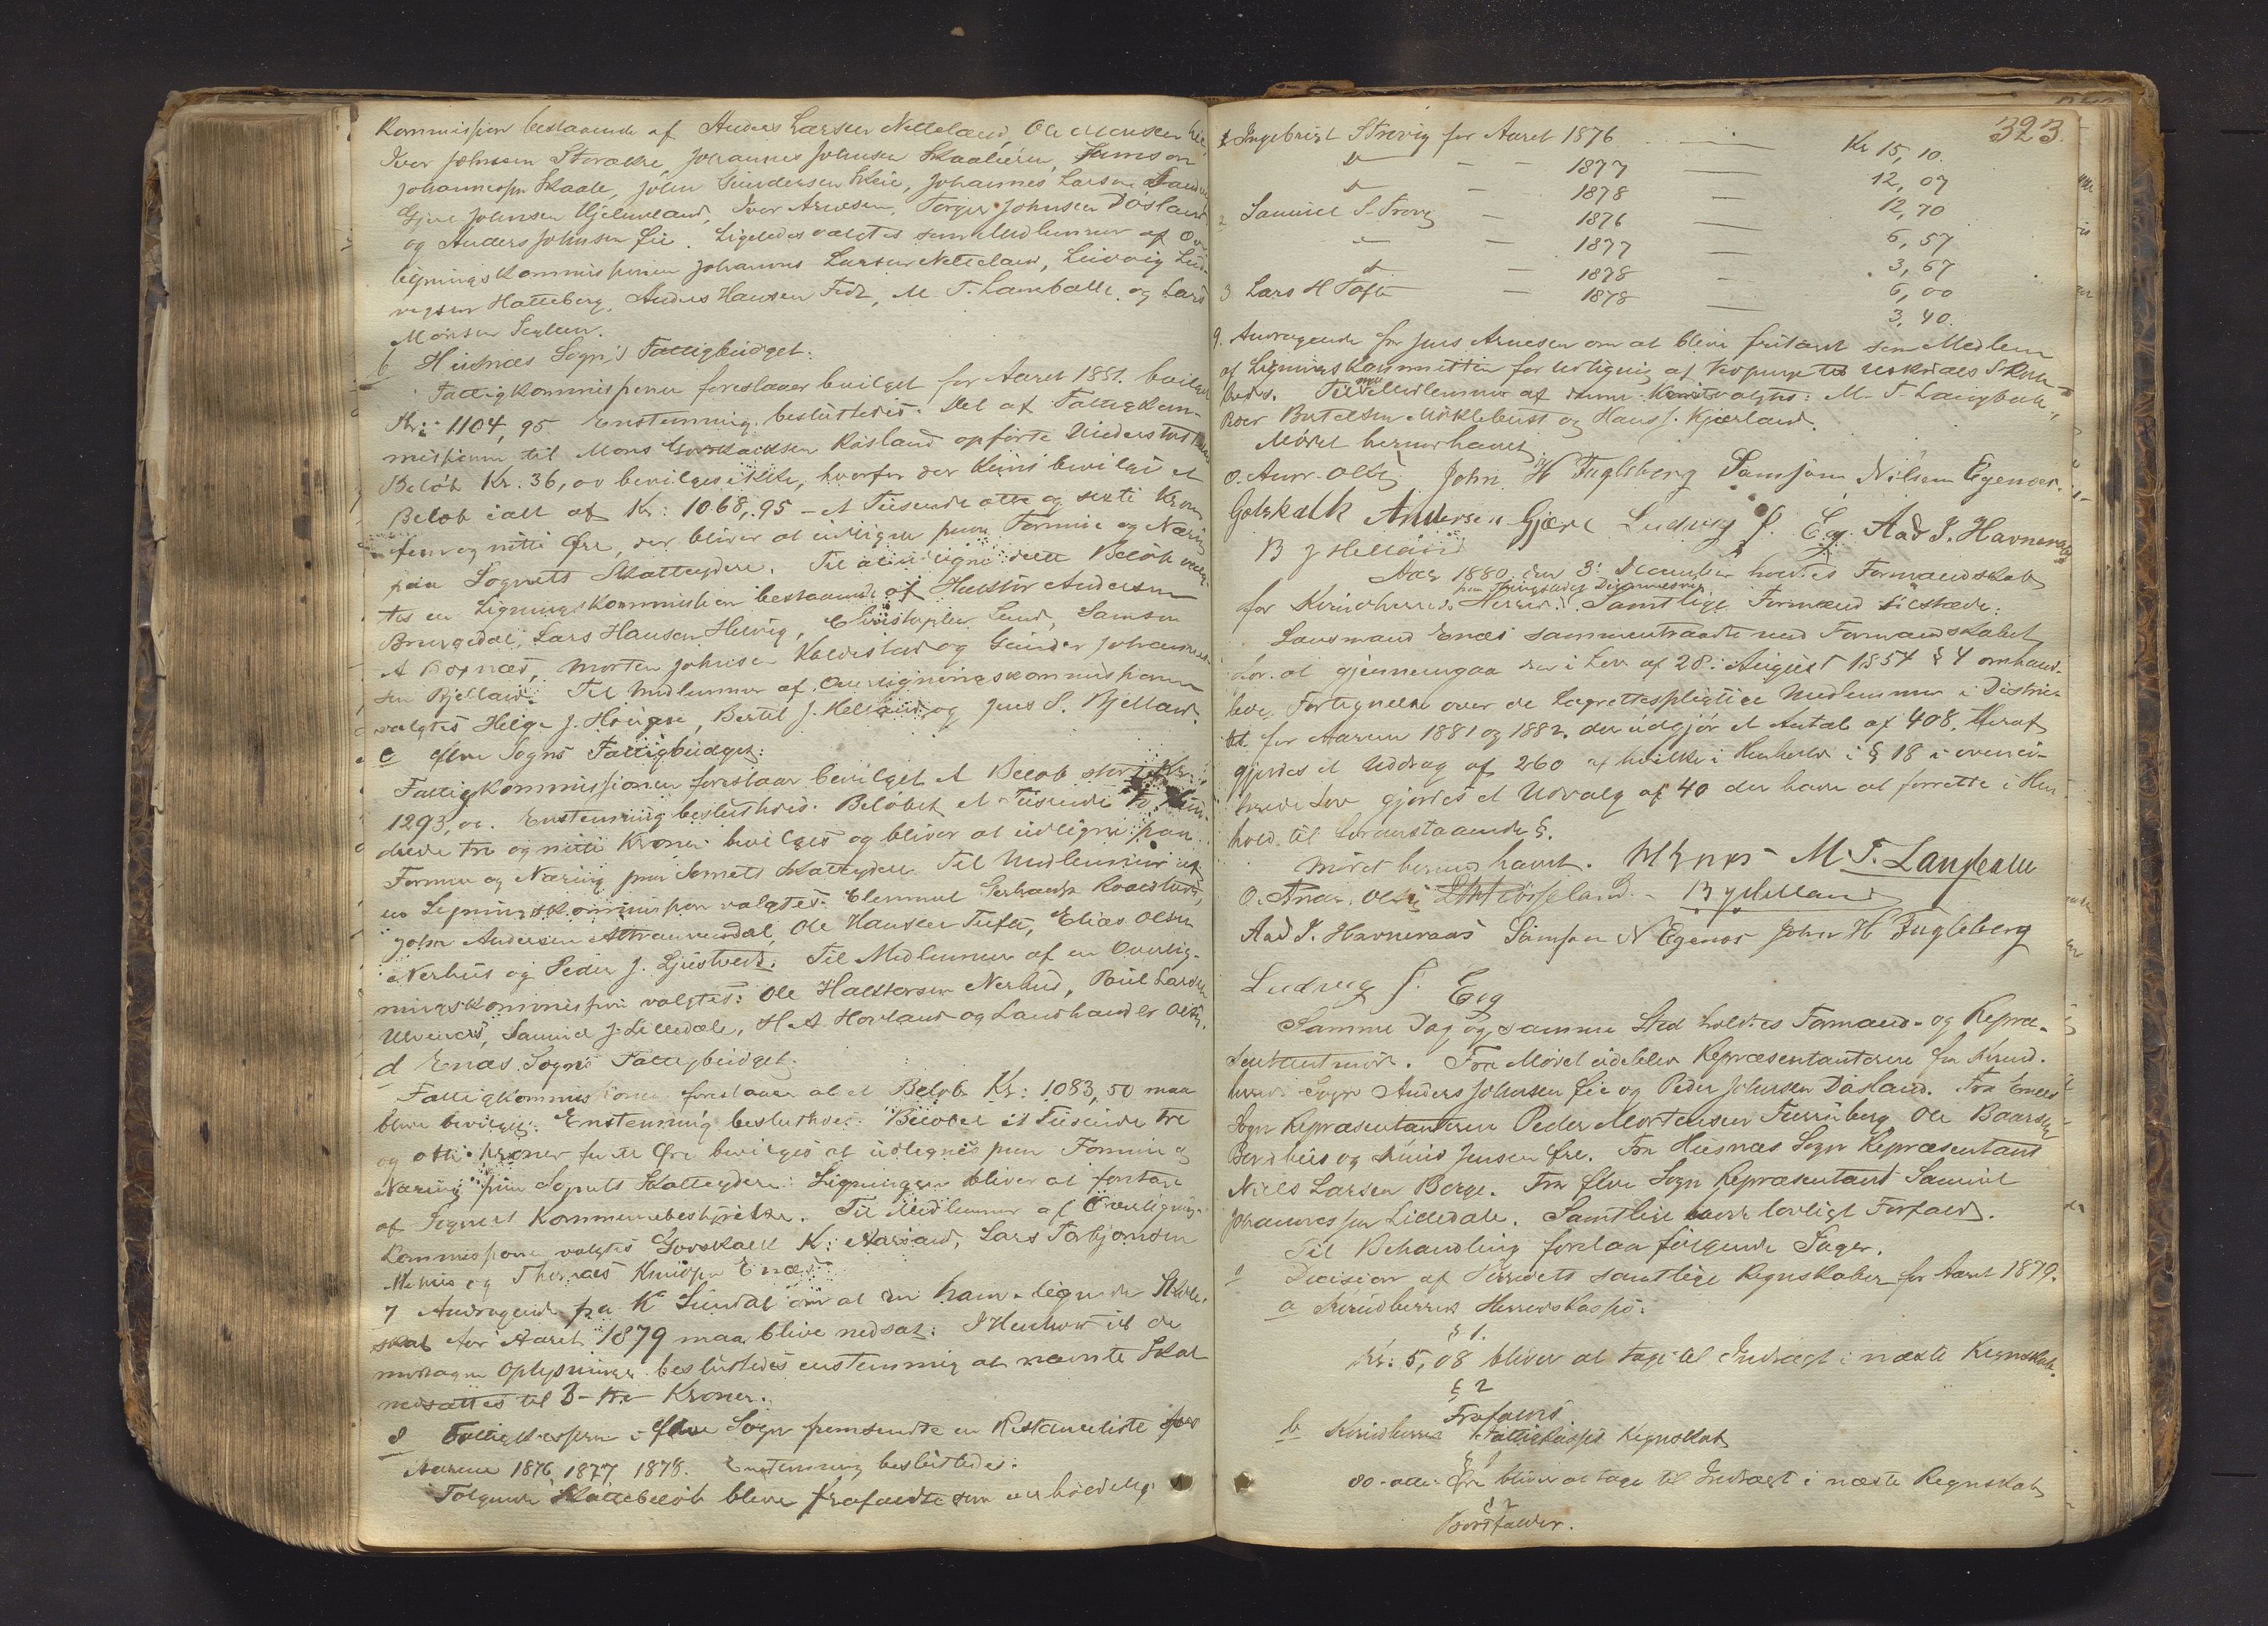 Kommission bestaaende af Anders Larsen Netteland, Ole Monsen
Iver Johnsen Storækre, Johannes Johnsen Skaaluren, Samson
Johannessen Skaale, John Gundersen Skeie, Johannes Larsen
Gjert Johnsen Hjelmeland, Iver Arnesen, Torger Johnsen Døsland
og Anders Johnsen Øie. Ligeledes valgtes som Medlemmer af Over
ligningskommissionen Johannes Larsen Netteland, Ludvig Lud-
vigsen Hatteberg, Anders Hansen Fet, M. T. Langballe og Lars
Monsen Seglem.
b Husnæs Sogn's Fattigbudget:
Fattigkommissionen foreslaaer bevilget for Aaret 1881. bevilget
Kr: 1104,95 Enstemmig besluttedes: Det af Fattigkom-
missionen til Mons Røsland opførte Understøttelse
Beløb Kr. 36,00 bevilges ikke, hvorfor der kun bevilges et
Beløb ialt af Kr: 1068,95 - et Tusinde otte og sexti Kroner
fem og nitti Øre, der bliver at udligne paa Formue og Næring
paa Sognets Skatteydere. Til at udligne dette Beløb valg-
tes en Ligningskommission bestaaende af Halstør Andersen
Brungedal, Lars Hansen Helvig, Christopher Lund, Samson
A Bognæs, Morten Johnsen Kaldestad og Gunder Johannes-
sen Bjelland. Til Medlemmer af Overligningskommissionen
valgtes Helge J. Haugse, Bertel J. Helland og Jens S. Bjelland.
c Ølve Sogns Fattigbudget:
Fattigkommissionen foreslaar bevilget et Beløb stort Kr:
1293,00. Enstemmig besluttedes: Beløbet et Tusinde to Hun-
drede tre og nitti Kroner bevilges og bliver at udligne paa
Formue og Næring paa Sognets Skatteydere. Til Medlemmer af
en Ligningskommission valgtes: Clemmet Gerhards
John Andersen Ole Hansen Tufte, Elias Olsen
Nerhus og Peder J. Ljustvedt. Til Medlemmer af en Overlig-
ningskommission valgtes: Ole Haldorsen Nerhus, Poul Larsen
Ulvenæs, Samuel J. Lilledale, H. A. Hovland og Landhandler Olsen.
d Enæs Sogns Fattigbudget.
Fattigkommissionen foreslaaer at et Beløb Kr: 1083,50 maa
blive bevilget. Enstemmig besluttedes: Beløbet et Tusinde tre
og otti Kroner femti Øre bevilges at udlignes paa Formue og
Næring paa Sognets Skatteydere. Ligningen bliver at foretage
af Sognets Kommunebestyrelse. Til Medlemmer af Overlignings-
kommissionen valgtes Godskalk K. Lars Torbjørnsen
og Thomas Knudsen Enæs.
7 Andragende fra K Sundal om at den ham paalignede Skole-
skat for Aaret 1879 maa blive nedsat: I Henhold til de
modtagne Oplysninger besluttedes enstemmig at nævnte Skat
nedsættes til 3 - tre Kroner.
8 Fattigkassen i Ølve Sogn fremsendte en Restanceliste for
Aarene 1876, 1877, 1878. Enstemmig besluttedes:
Følgende Skattebeløb blive frafaldte som uerholdelig
323.
1 Ingebrigt S. Trovig for Aaret 1876 Kr 15,10.
1877 12,07
1878 12,70
2 Samuel S. Trovig 1876 6,57
1877 3,67
1878 6,00
3 Lars H Tofte 1878 3,40.
9. Andragende fra Jens Arnesen om at blive fritaget som Medlem
af Ligningskommissionen for Udligning af Udskuds Skole-
kreds. Til nye Medlemmer af denne Kreds valgtes: M. T. Langballe,
Roer Bertelsen Møklebust og Hans J. Kjærland.
Mødet hermed hævet
O. Andr. Olsen John H Fugleberg Samson Nilsen Egenæs.
Gotskalk Andersen Gjære Ludvig J. Eeg. Aad J. Havneraas
B J Helland
Aar 1880 den 3. December holdtes Formandskab
paa Thingstedet Dimmelsvig
for Kvindherreds Herred. Samtlige Formænd tilstæde.
Lensmand Enæs sammentraadte med Formandskabet
for at gjennemgaa den i Lov af 28. August 1854 § 4 omhand-
lede Fortegnelse over de Lagrettespligtige Medlemmer i Distric-
tet for Aarene 1881 og 1882. der udgjør et Antal af 408. Heraf
gjordes et Uddrag af 260 af hvilke i Henhold i § 18 i ovenci-
terede Lov gjordes et Udvalg af 40 der have at forrette i Hen-
hold til foranstaaende §.
Mødet hermed hævet. M T. Langballe
O. Andr. Olsen B J Helland
Aad J. Havneraas Samson N Egenæs John H Fugleberg
Ludvig J. Eeg
Samme Dag og samme Sted holdtes Formand- og Repræ-
sentantmøde. Fra Mødet udebleve Repræsentanterne for Kvind-
herreds Sogn Anders Johnsen Øie og Peder Johnsen Døsland. Fra Enæs
Sogn Repræsentanterne Peder Mortensen Furuberg Ole Baardsen
Bordhus og Knud Jensen Øre. Fra Husnæs Sogn Repræsentant
Niels Larsen Berge. Fra Ølve Sogn Repræsentant Samuel
Johannessen Lilledale. Samtlige havde lovligt Forfald.
Til Behandling forelaa følgende Sager.
1 Decision af Herredets samtlige Regnskaber for Aaret 1879.
a Kvindherreds Herredskasse:
§ 1.
Kr: 5,08 bliver at tage til Indtægt i næste Regnskab.
§ 2
Frafaldes.
b Kvindherreds Fattigkasses Regnskab
§ 1
80 - otti Øre bliver at tage til Indtægt i næste Regnskab
§ 2
Bortfalder.